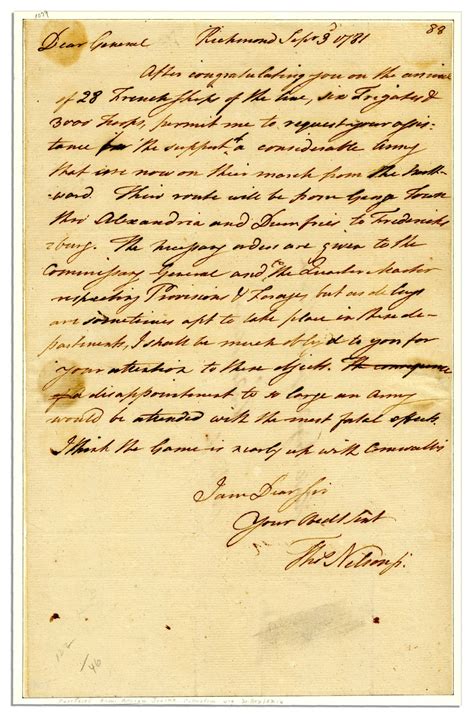 1079
88
Dear General Richmond Sepr 3 1781
After congratulating you on the arrival
of 28 French Ships of the line, six Frigates &
3000 troops, permit me to request your assis-
tance for the support of a considerable Army
that are now on their march from the North-
ward. Their route will be from George Town
thro Alexandria and Dumfries to Fredericks
burg. The necessary orders are given to the
Commissary General and the Quarter Master
respecting Provisions & Forage, but as delays
are sometimes apt to take place in these de-
partments, I shall be much oblig'd to you for
your attention to these objects. The consequence
of a disappointment to so large an Army
would be attended with the most fatal effects.
I think the Game is nearly up with Cornwallis
I am Dear Sir
Your Obedt Servt
Thos Nelson jr.